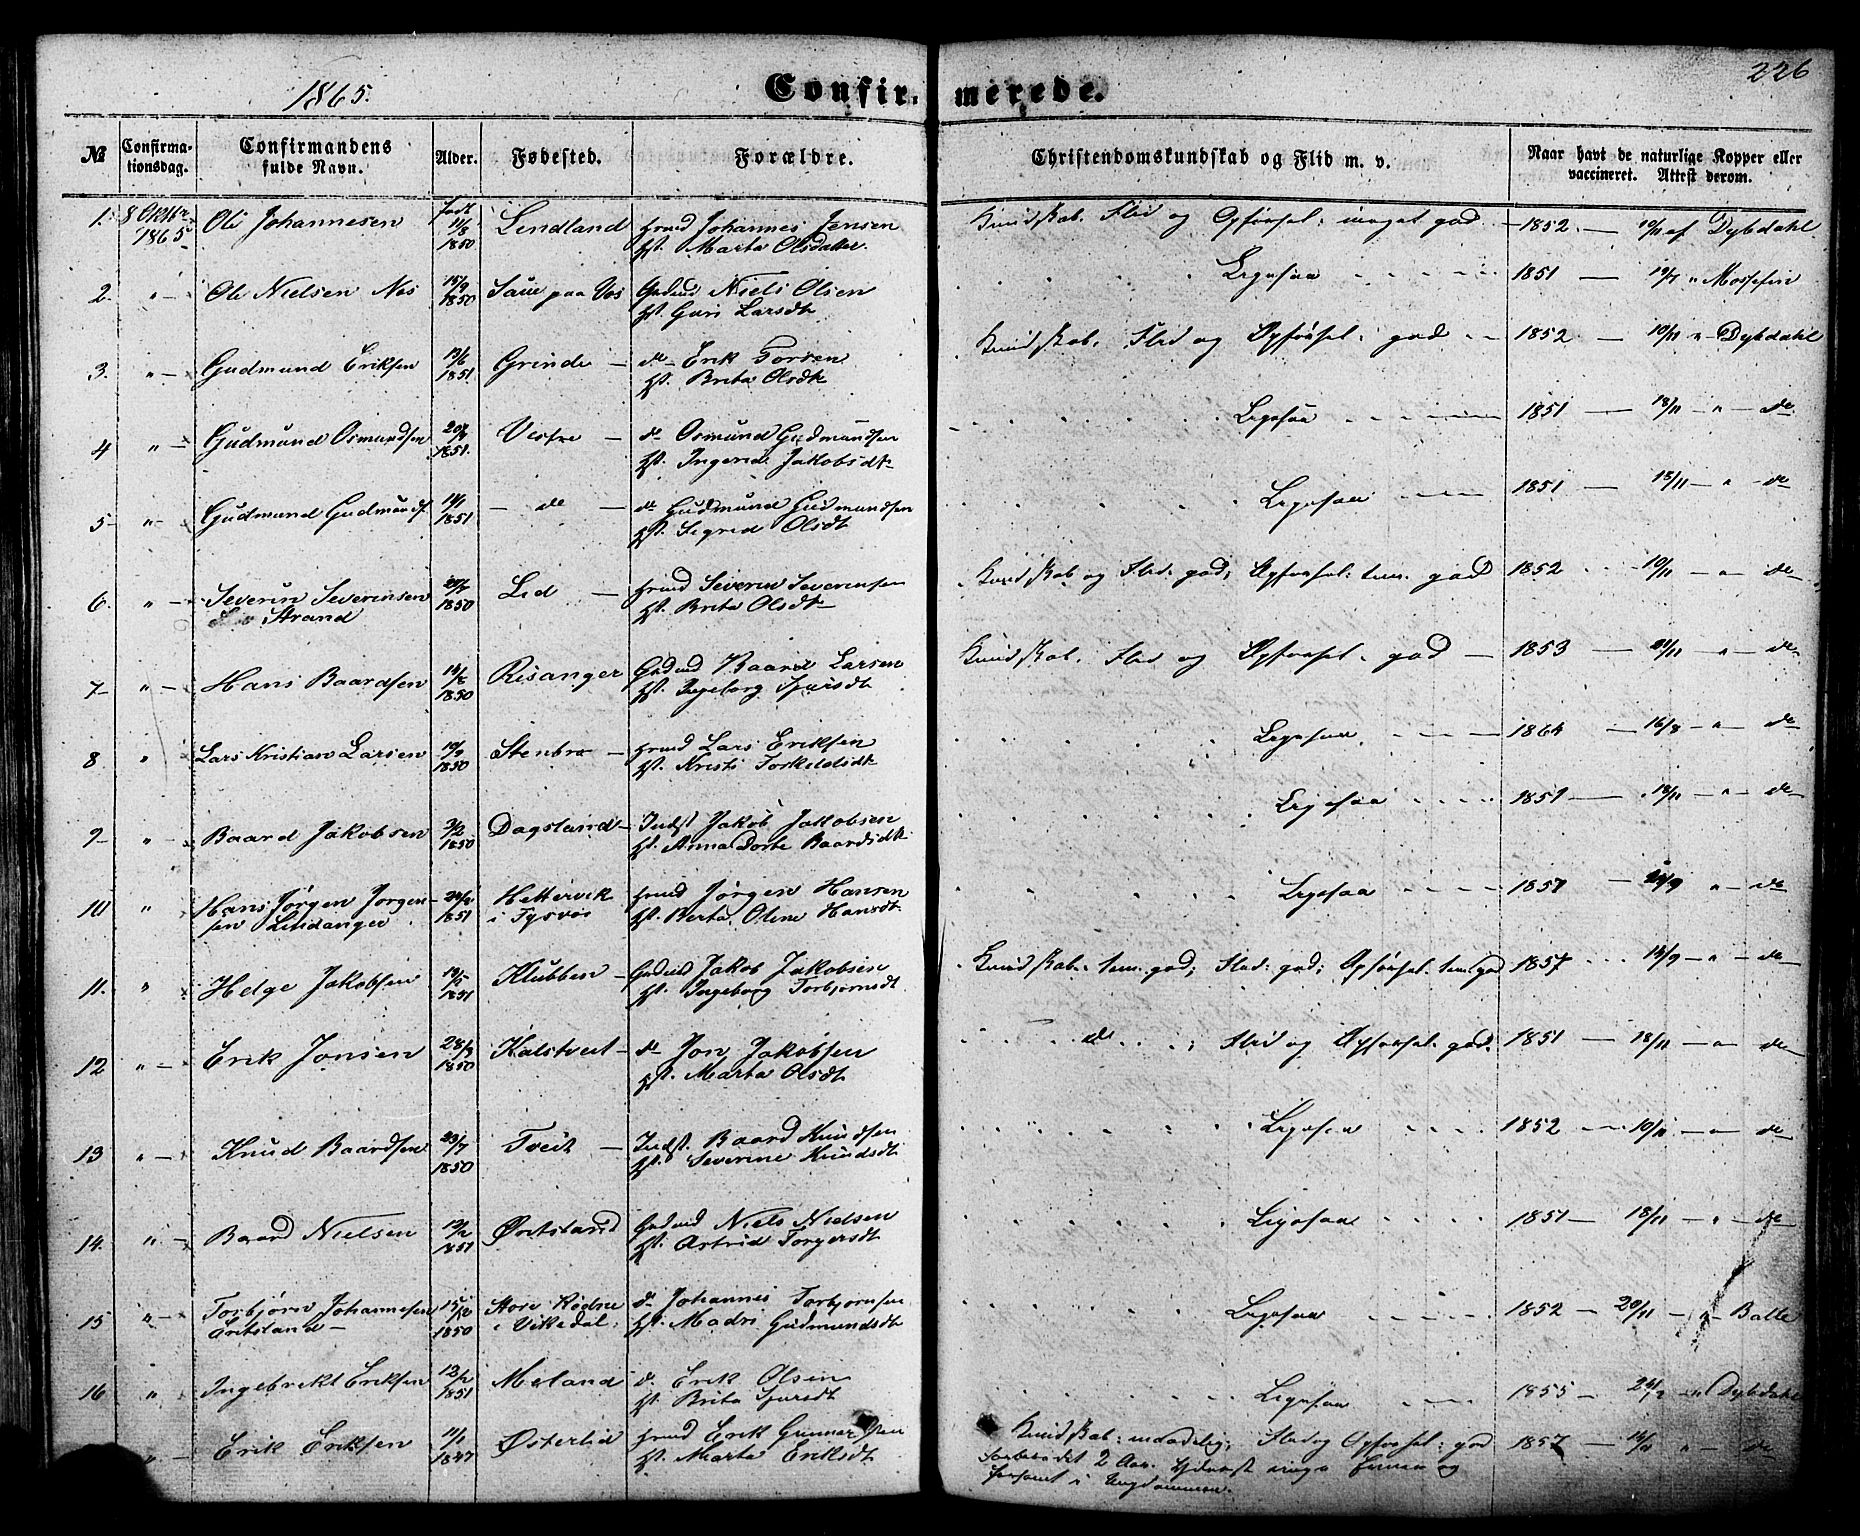 1865.
Confirmerede.
226
№ Confirmationsdag. Confirmandens fulde Navn. Alder. Fødested. Forældre. Christendomskundskab og Flid m. v. Naar havt de naturlige Kopper eller vaccineret. Attest derom.
1. 8 Oktbr 1865 Ole Johannesen født 1850 Lindland Hmd Johannes Jensen Hst. Marta Olsdatter Kundskab, Flid og Opførsel: meget god 1852 — 10/11 af Dybdahl
2. " — Ole Nielsen Nes 15/9 1850 Saue paa Vos Grdmd Niels Olsen Hst. Guri Larsdt Ligesaa 1851 " Mossefin
3. " — Gudmund Eriksen 13/6 1851 Grinde — do Erik Torsen Hst. Brita Olsdt Kundskab, Flid og Opførsel: god 1852 — 10/11 " Dybdahl
4 " — Gudmund Osmundsen 1851 Vestre — do Osmund Gudmundsen Hst. Ingerid Jakobsdt Ligesaa 1851 — 18/11 " — do
5 " — Gudmund Gudmunds 1851 — do — do Gudmund Gudmundsen Hst. Sigrid Olsdt Ligesaa 1851 — 18/11 " — do
6. " — Severin Severinsen Strand 1850 Lid — Hmd Severin Severinsen Hst. Brita Olsdt Kundskab og Flid: god, Opførsel: tem. god 1852 10/11 " — do
7 " — Hans Baardsen 14/8 1850 Risanger Grdmd Baard Larsen Hst. Ingeborg Sjursdt Kundskab, Flid og Opførsel: god — 1853 — " — do
8 " Lars Kristian Larsen 19/9 1850 Stenbro — Hmd Lars Eriksen Hst. Kristi Torkeldsdt Ligesaa 1864 — 16/8 " — do
9 " — Baard Jakobsen 1850 Dagsland — Indst Jakob Jakobsen Hst. Anna Dorte Baardsdt Ligesaa 1851 — 18/11 — do
10 " Hans Jørgen Jørgensen Lindanger 1851 Hettervik i Tysvær Hmd Jørgen Hansen Hst. Berta Oline Hansdt Ligesaa 1857 — " — do
11. " Helge Jakobsen 1851 Klubben — Grdmd Jakob Jakobsen Hst. Ingeborg Torbjørnsdt Kundskab: tem. god; Flid: god; Opførsel: tem. god 1857 14/9 — " — do
12 " — Erik Jonsen 28/9 1850 Kalstveit — do Jon Jakobsen Hst. Marta Olsdt do Flid og Opførsel: god. 1851 — 18/11 — " — do
13 " — Knud Baardsen 23/7 1850 Tveit — Indst. Baard Knudsen Hst. Severine Knudsdt Ligesaa 1852 — 10/11 — " — do
14. " — Baard Nielsen 12/2 1851 Ørtsland Grdmd Niels Nielsen Hst. Astrid Torgersdt Ligesaa 1851 — 18/11 — " — do
15 " — Torbjørn Johannesen Ørtsland 15/12 1850 Store Rødne i Vikedal do Johannes Torbjørnsen Hst. Madri Gudmundsdt Ligesaa 1852 — 20/11 — " — Balle
16 " Ingebrikt Eriksen 12/2 1851 Meland do Erik Olsen Hst. Brita Sjursdt Ligesaa 1855 — " Dybdahl
" — Erik Eriksen 1847 Østerlid Hmd Erik Gunnarsen Hst. Marta Eriksdt Kundskab: maadelig; Flid og Opførsel: god 1857 — 14/11 " — do
forberedet 2 Aar.
i Ungdommen.